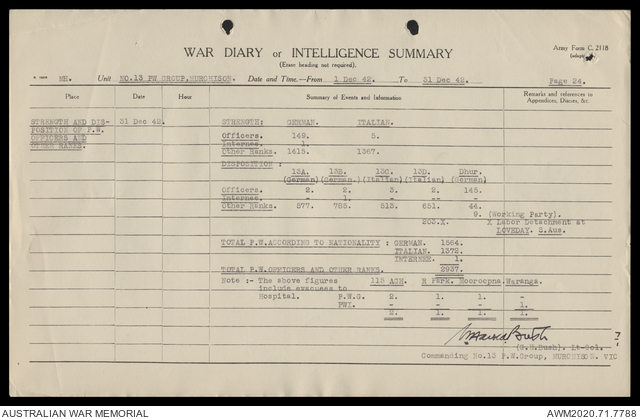 Army Form C. 2118
WAR DIARY or INTELLIGENCE SUMMARY
(Erase heading not required).
MH. Unit NO.13 PW GROUP, MURCHISON. Date and Time.—From 1 Dec 42. To 31 Dec 42. Page 24.
Place Date Hour Summary of Events and Information Remarks and references to
Appendices, Diaries, &c.
STRENGTH AND DIS- 31 Dec 42. STRENGTH: GERMAN. ITALIAN.
POSITION OF P.W.
OFFICERS AND Officers. 149. 5.
OTHER RANKS. Internee. 1.
Other Ranks. 1415. 1367.
DISPOSITION :
13A. 13B. 13C. 13D. Dhur.
(German) (German.) (Italian) (Italian) (German)
Officers. 2. 2. 3. 2. 145.
Internee. - 1. - -- --
Other Ranks. 577. 785. 513. 651. 44.
9. (Working Party).
203.X. X Labor Detachment at
LOVEDAY. S.Aus.
TOTAL P.W. ACCORDING TO NATIONALITY : GERMAN. 1564.
ITALIAN. 1372.
INTERNEE 1.
TOTAL P.W. OFFICERS AND OTHER RANKS. 2937.
Note :- The above figures 115 AGH. R Park. Mooroopna. Waranga.
include evacuees to
Hospital. P.W.G 2. 1. 1. -
PWI. - - - 1.
2. 1. 1. 1.
(G.M.Bush). Lt-Col.
Commanding No.13 P.W.Group, MURCHISON. VIC
AUSTRALIAN WAR MEMORIAL AWM2020.71.7788